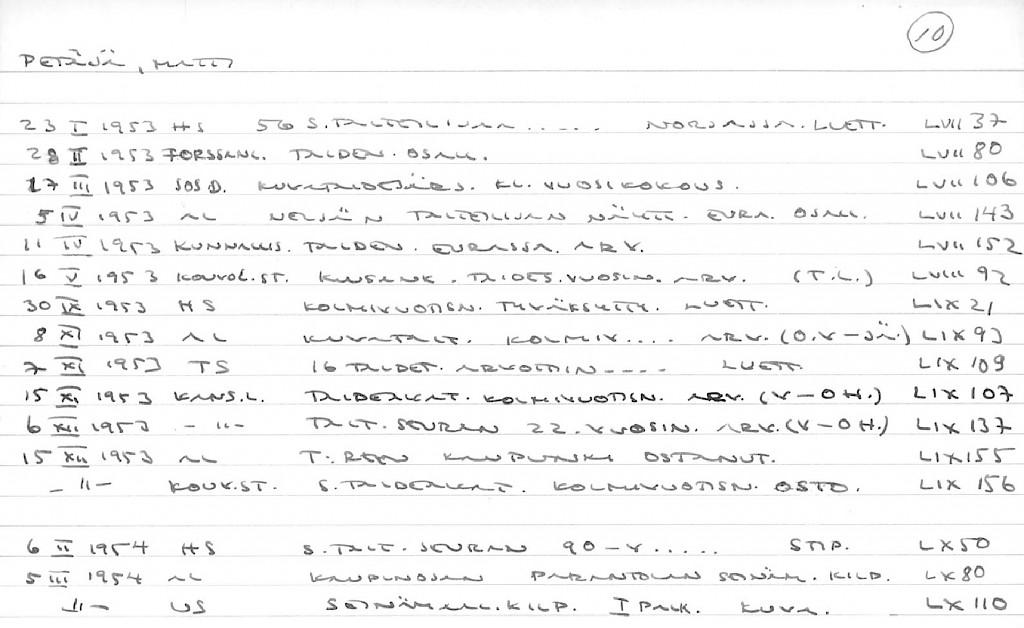 10
PETÄJÄ, MATTI
23 I 1953 HS 56 S.TAITEILIJAA ..... NORJASSA. LUETT. LVII 37
28 II 1953 FORSSANL. TAIDEN. OSALL. LVII 80
17 III 1953 SOS D. KUVATAIDEJÄRJ. KL. VUOSIKOKOUS. LVII 106
5 IV 1953 AL NELJÄN TAITEILIJAN NÄYTT. EURA. OSALL. LVII 143
11 IV 1953 KUNNALLIS. TAIDEN. EURASSA. ARV. LVII 152
16 V 1953 KOUVOL.ST. KUUSANK. TAIDES.VUOSIN. ARV. (T.L.) LVIII 92
30 IX 1953 HS KOLMIVUOTISN. HYVÄKSYTTY. LUETT. LIX 21
8 XI 1953 AL KUVATAIT. KOLMIV.... ARV. (O.V-JÄ.) LIX 93
7 XI 1953 TS 16 TAIDET. ARVOTTIIN---- LUETT. LIX 109
15 XI 1953 KANS.L. TAIDEAKAT. KOLMIVUOTISN. ARV. (V-OH.) LIX 107
6 XII 1953 -"- TAIT. SEURAN 22. VUOSIN. ARV.(V-OH.) LIX 137
15 XII 1953 AL T:REEN KAUPUNKI OSTANUT. LIX 155
-"- KOUV.ST. S.TAIDEAKAT. KOLMIVUOTISN. OSTO. LIX 156
6 II 1954 HS S.TAIT. SEURAN 90-V..... STIP. LX 50
5 III 1954 AL KAUPINOJAN PARANTOLAN SEINÄM. KILP. LX 80
-"- US SEINÄMAAL.KILP. I PALK. KUVA. LX 110